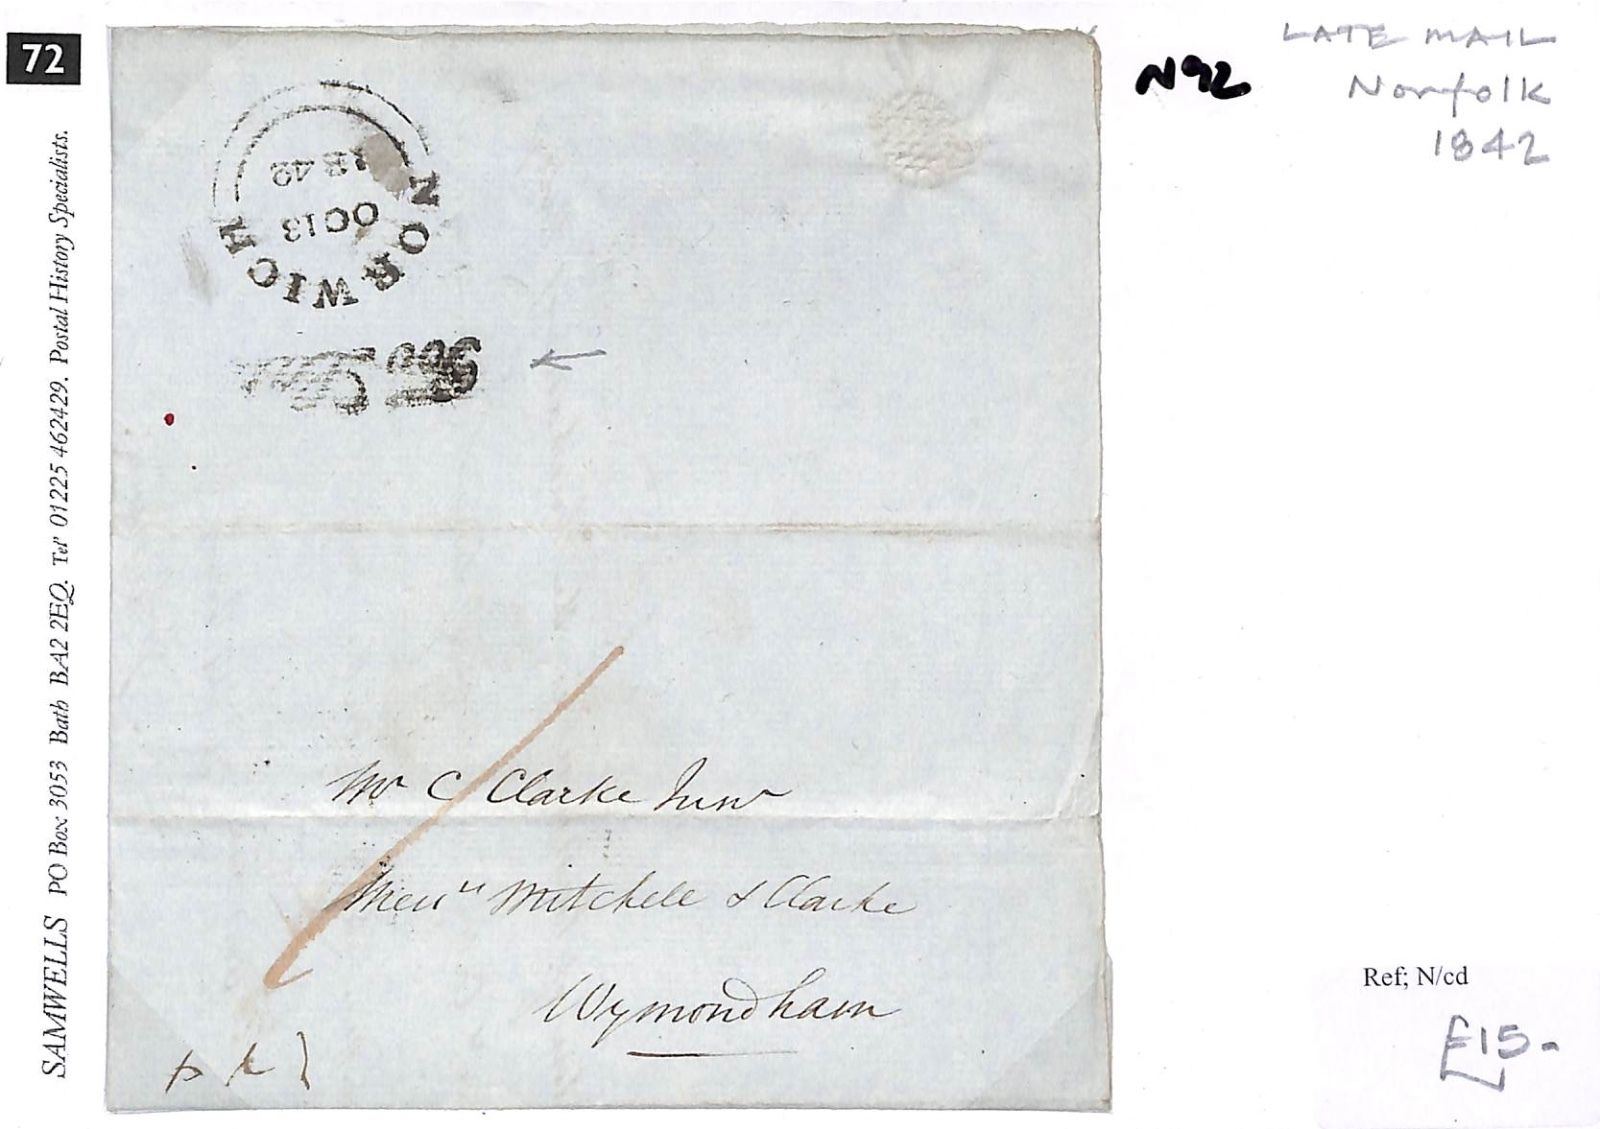 72
SAMWELLS PO Box 3053 Bath BA2 2EQ. Tel' 01225 462429. Postal History Specialists.
N92
LATE MAIL
Norfolk
1842
NORWICH
OC 13
1842
Too
Mr C Clarke Junr
Messrs Mitchell & Clarke
Wymondham
Ref; N/cd
£15-